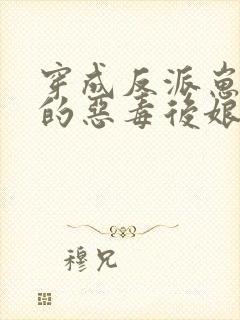 穿成反派崽
的惡毒後娘
穆兄